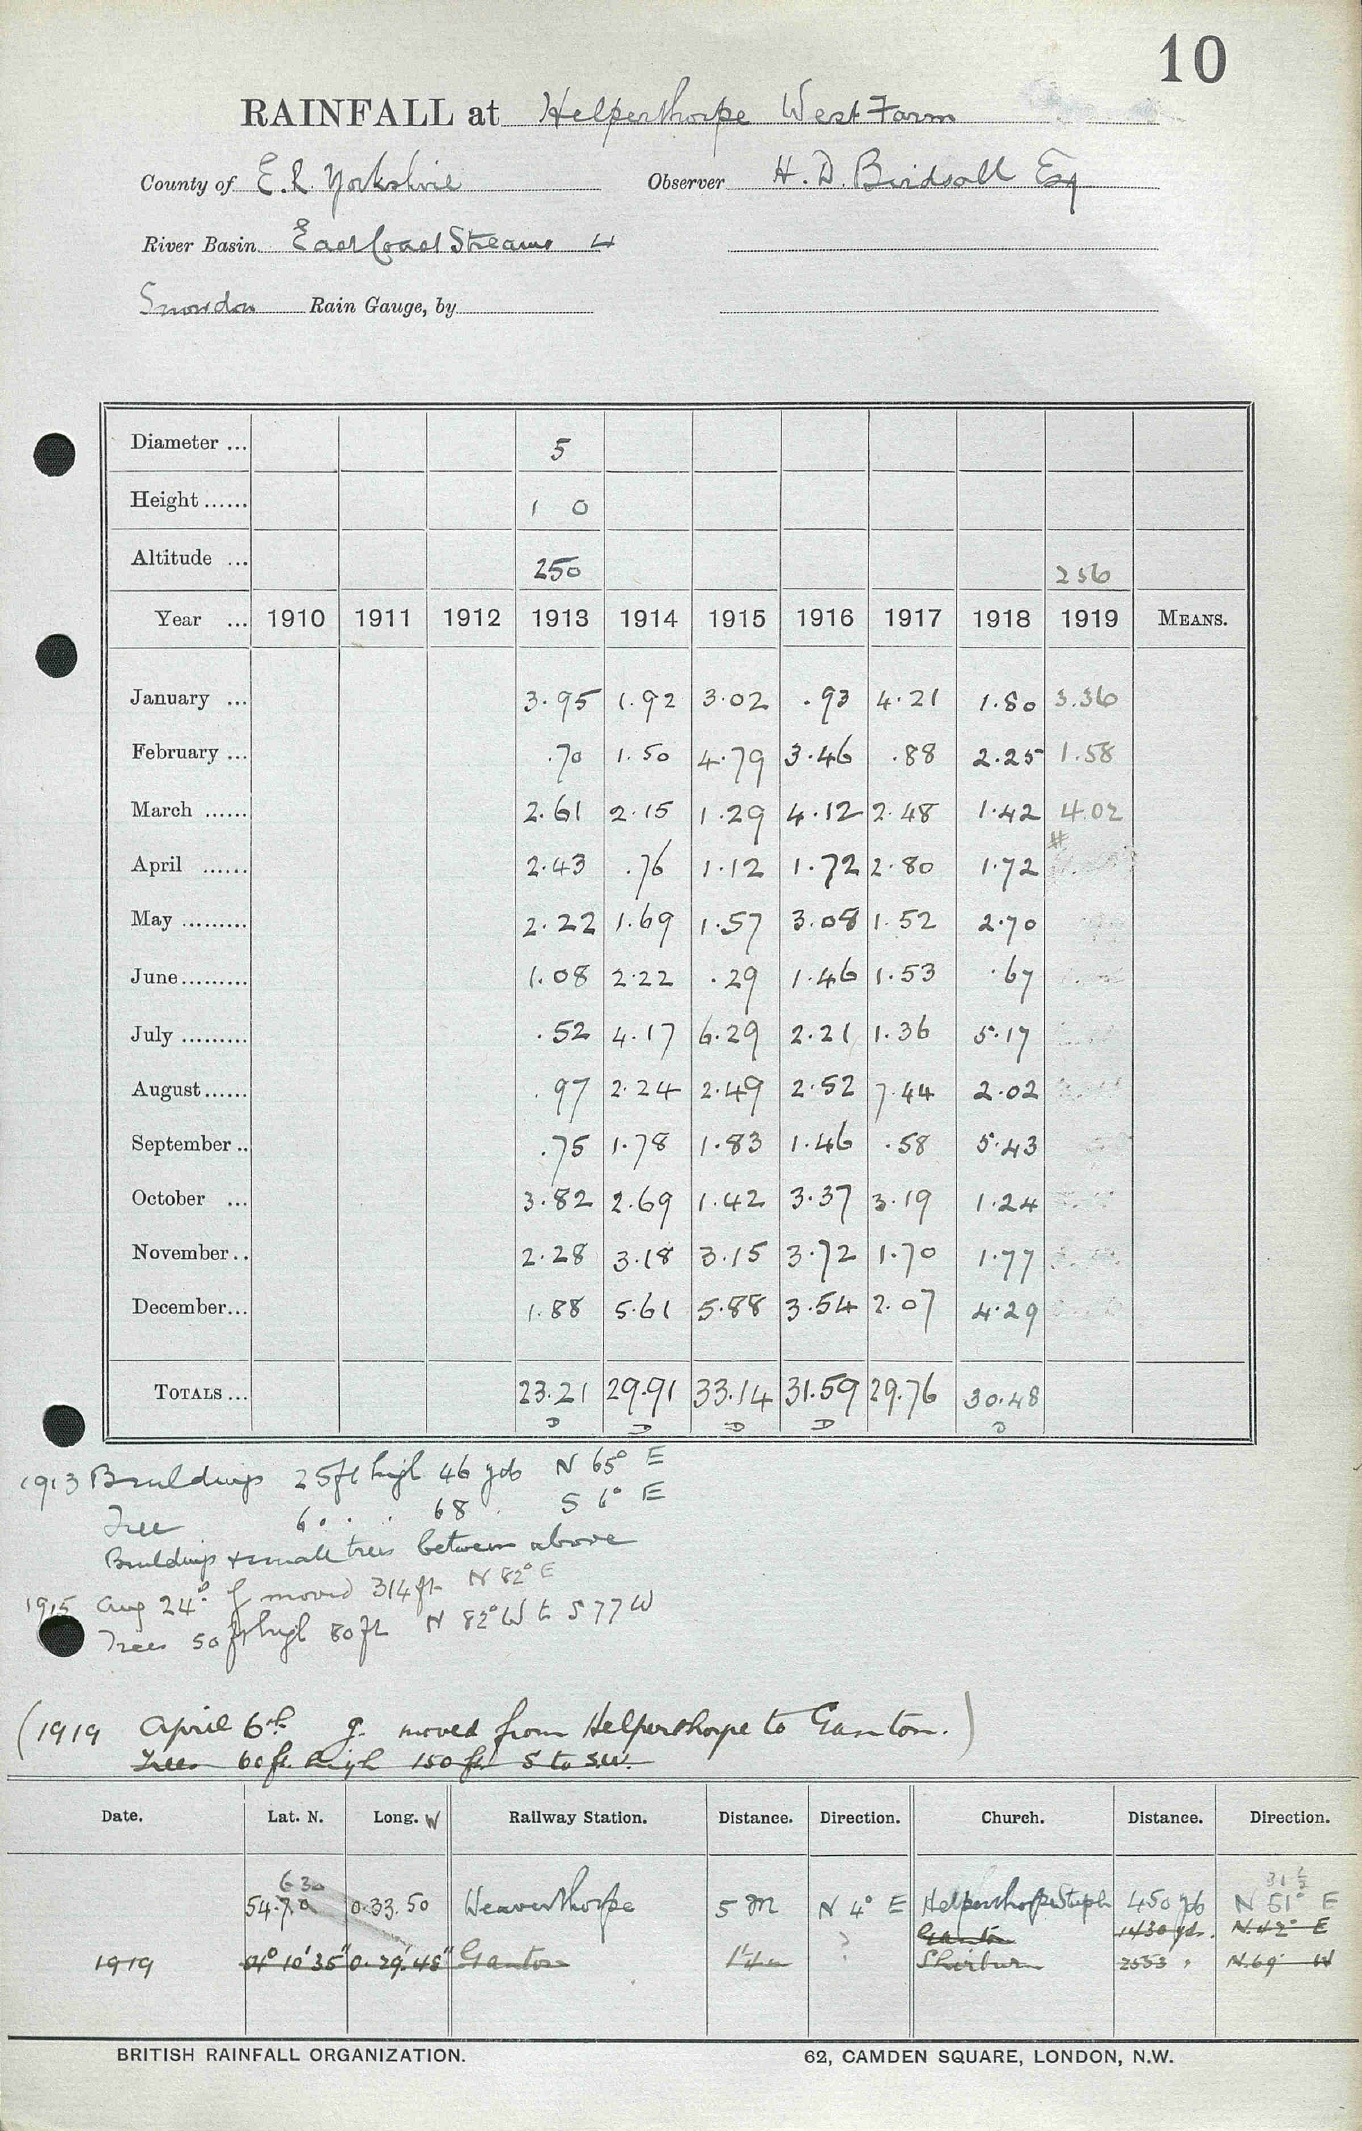 10
RAINFALL at Helperthorpe West Farm
County of E.R. Yorkshire Observer H. D. Birdsall Esq
River Basin East Coast Streams 4
Snowdon Rain Gauge, by
Diameter ... 5
Height ...... 1 0
Altitude ... 250 256
Year ... 1910 1911 1912 1913 1914 1915 1916 1917 1918 1919 MEANS.
January ... 3.95 1.92 3.02 .93 4.21 1.80 3.36
February ... .70 1.50 4.79 3.46 .88 2.25 1.58
March ...... 2.61 2.15 1.29 4.12 2.48 1.42 4.02
April ...... 2.43 .76 1.12 1.72 2.80 1.72
May ......... 2.22 1.69 1.57 3.08 1.52 2.70
June ......... 1.08 2.22 .29 1.46 1.53 .67
July ......... .52 4.17 6.29 2.21 1.36 5.17
August ...... .97 2.24 2.49 2.52 7.44 2.02
September .. .75 1.78 1.83 1.46 .58 5.43
October ... 3.82 2.69 1.42 3.37 3.19 1.24
November .. 2.28 3.18 3.15 3.72 1.70 1.77
December ... 1.88 5.61 5.88 3.54 2.07 4.29
TOTALS ... 23.21 29.91 33.14 31.59 29.76 30.48
D D D D D
1913 Buildings 25ft high 46 yds N 65° E
Tree 60 . . 68 . S 6° E
Buildings + small trees between above
1915 Aug 24° g moved 314ft N 82° E
Trees 50ft high 80ft N 82° W to S 77 W
(1919 April 6th g. moved from Helperthorpe to Ganton.)
Trees 60ft. high 150 ft S to S.W.
Date. Lat. N. Long. W Railway Station. Distance. Direction. Church. Distance. Direction.
6 30 31½
54.7.0 0.33.50 Weaverthorpe 5 M N 4° E Helperthorpe Steeple 450 yds N 51° E
Ganton 1430 yds. N.42° E
1919 10' 35" 0. 29' 48" Ganton ? Shirburn 2553 N.69° W
BRITISH RAINFALL ORGANIZATION. 62, CAMDEN SQUARE, LONDON, N.W.